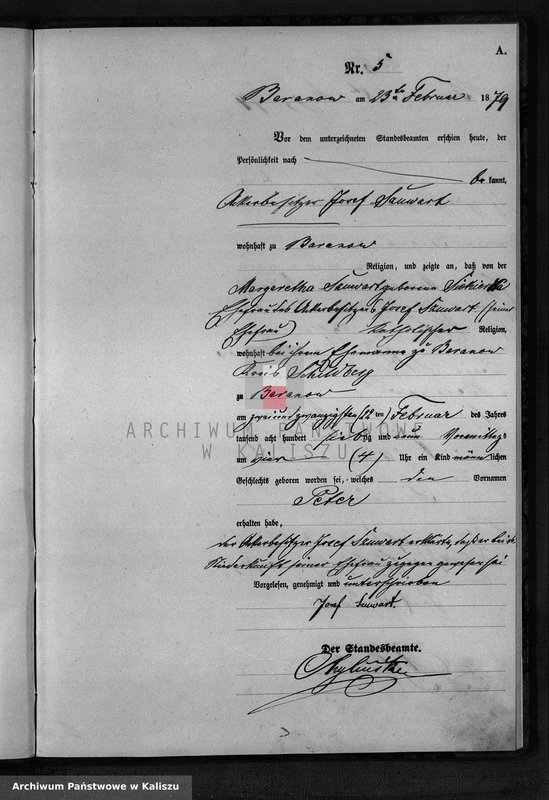 A.
Nr. 5
Baranow am 23ten Februar 1879
Vor dem unterzeichneten Standesbeamten erschien heute, der
Persönlichkeit nach
bekannt,
Ackerbesitzer Josef
wohnhaft zu Baranow
Religion, und zeigte an, daß von der
Margaretha geborenen
Ehefrau des Ackerbesitzers Josef (seiner
Ehefrau) katholischer Religion,
wohnhaft bei ihrem Ehemanne zu Baranow
Kreis Schildberg
zu Baranow
am zweiundzwanzigsten (22ten) Februar des Jahres
tausend acht hundert siebzig und neun Vormittags
um vier (4) Uhr ein Kind männlichen
Geschlechts geboren worden sei, welches den Vornamen
Peter
erhalten habe,
der Ackerbesitzer Josef erklärte, daß er bei der
Niederkunft seiner Ehefrau zugegen gewesen sei
Vorgelesen, genehmigt und unterschrieben
Josef
Der Standesbeamte.
ARCHIWUM PAŃSTWOWE
W KALISZU
Archiwum Państwowe w Kaliszu